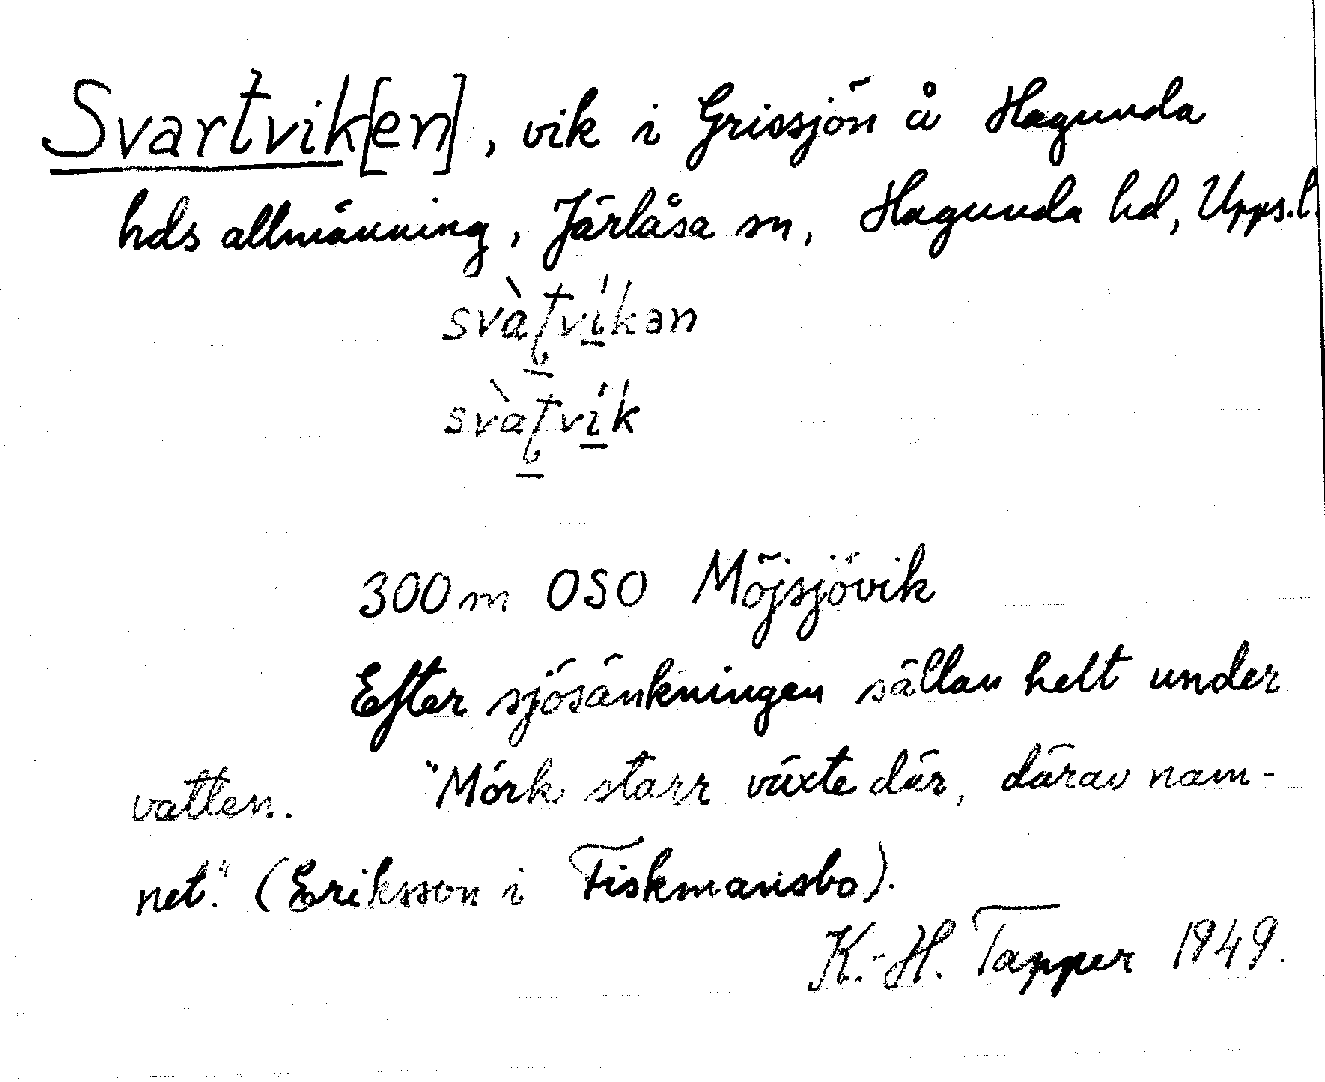 Svartvik[en], vik i Grissjön å Hagunda
hds allmänning, Järlåsa sn, Hagunda hd, Upps.l.
svàʈvíkən
svàʈvík
300 m OSO Möjsjövik
Efter sjösänkningen sällan helt under
vatten. "Mörk starr växte där, därav nam-
net." (Eriksson i Fiskmansbo).
K.-H. Tapper 1949.